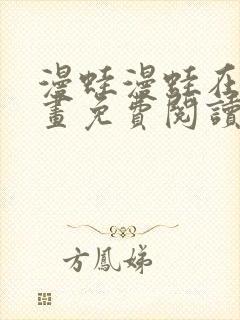 漫蛙漫蛙在
畫免費閱讀
方鳳娣